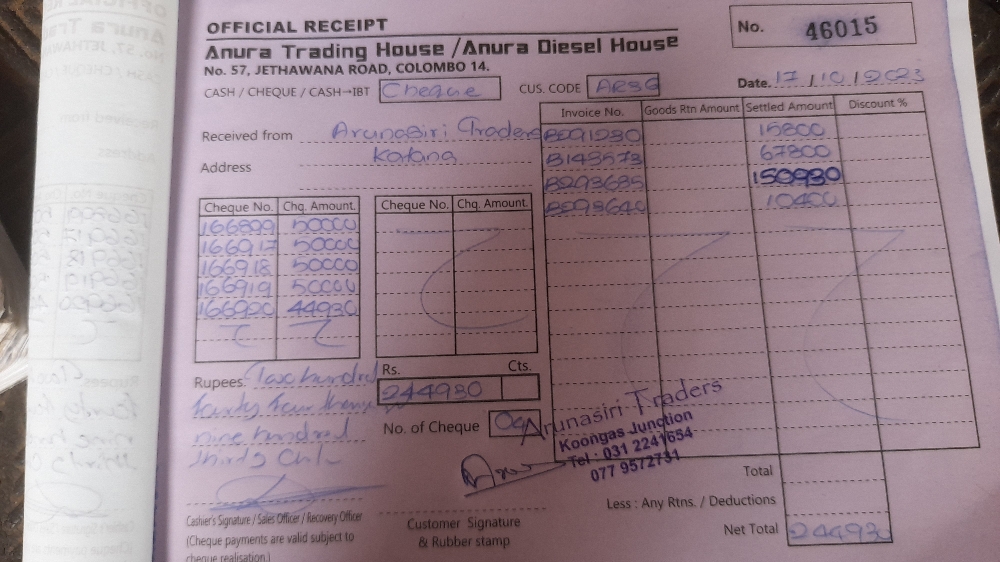 OFFICIAL RECEIPT
Anura Trading House / Anura Diesel House
No. 57, JETHAWANA ROAD, COLOMBO 14.
No. 46015
CASH / CHEQUE / CASH→IBT Cheque CUS. CODE Date. 17 / 10 / 2023
Received from Arunasiri Traders
Address Katana
Invoice No. Goods Rtn Amount Settled Amount Discount %
15800
67800
150930
10400
Cheque No. Chq. Amount. Cheque No. Chq. Amount.
166899 50000
166917 50000
166918 50000
166919 50000
166920 44930
Rupees. Two hundred
fourty four
nine hundred
thirty
Rs. Cts.
244930
No. of Cheque
Arunasiri Traders
Koongas Junction
Tel : 031 2241654
077 9572731
Total
Less : Any Rtns. / Deductions
Net Total 244930
Cashier's Signature / Sales Officer / Recovery Officer
(Cheque payments are valid subject to
cheque realisation.)
Customer Signature
& Rubber stamp